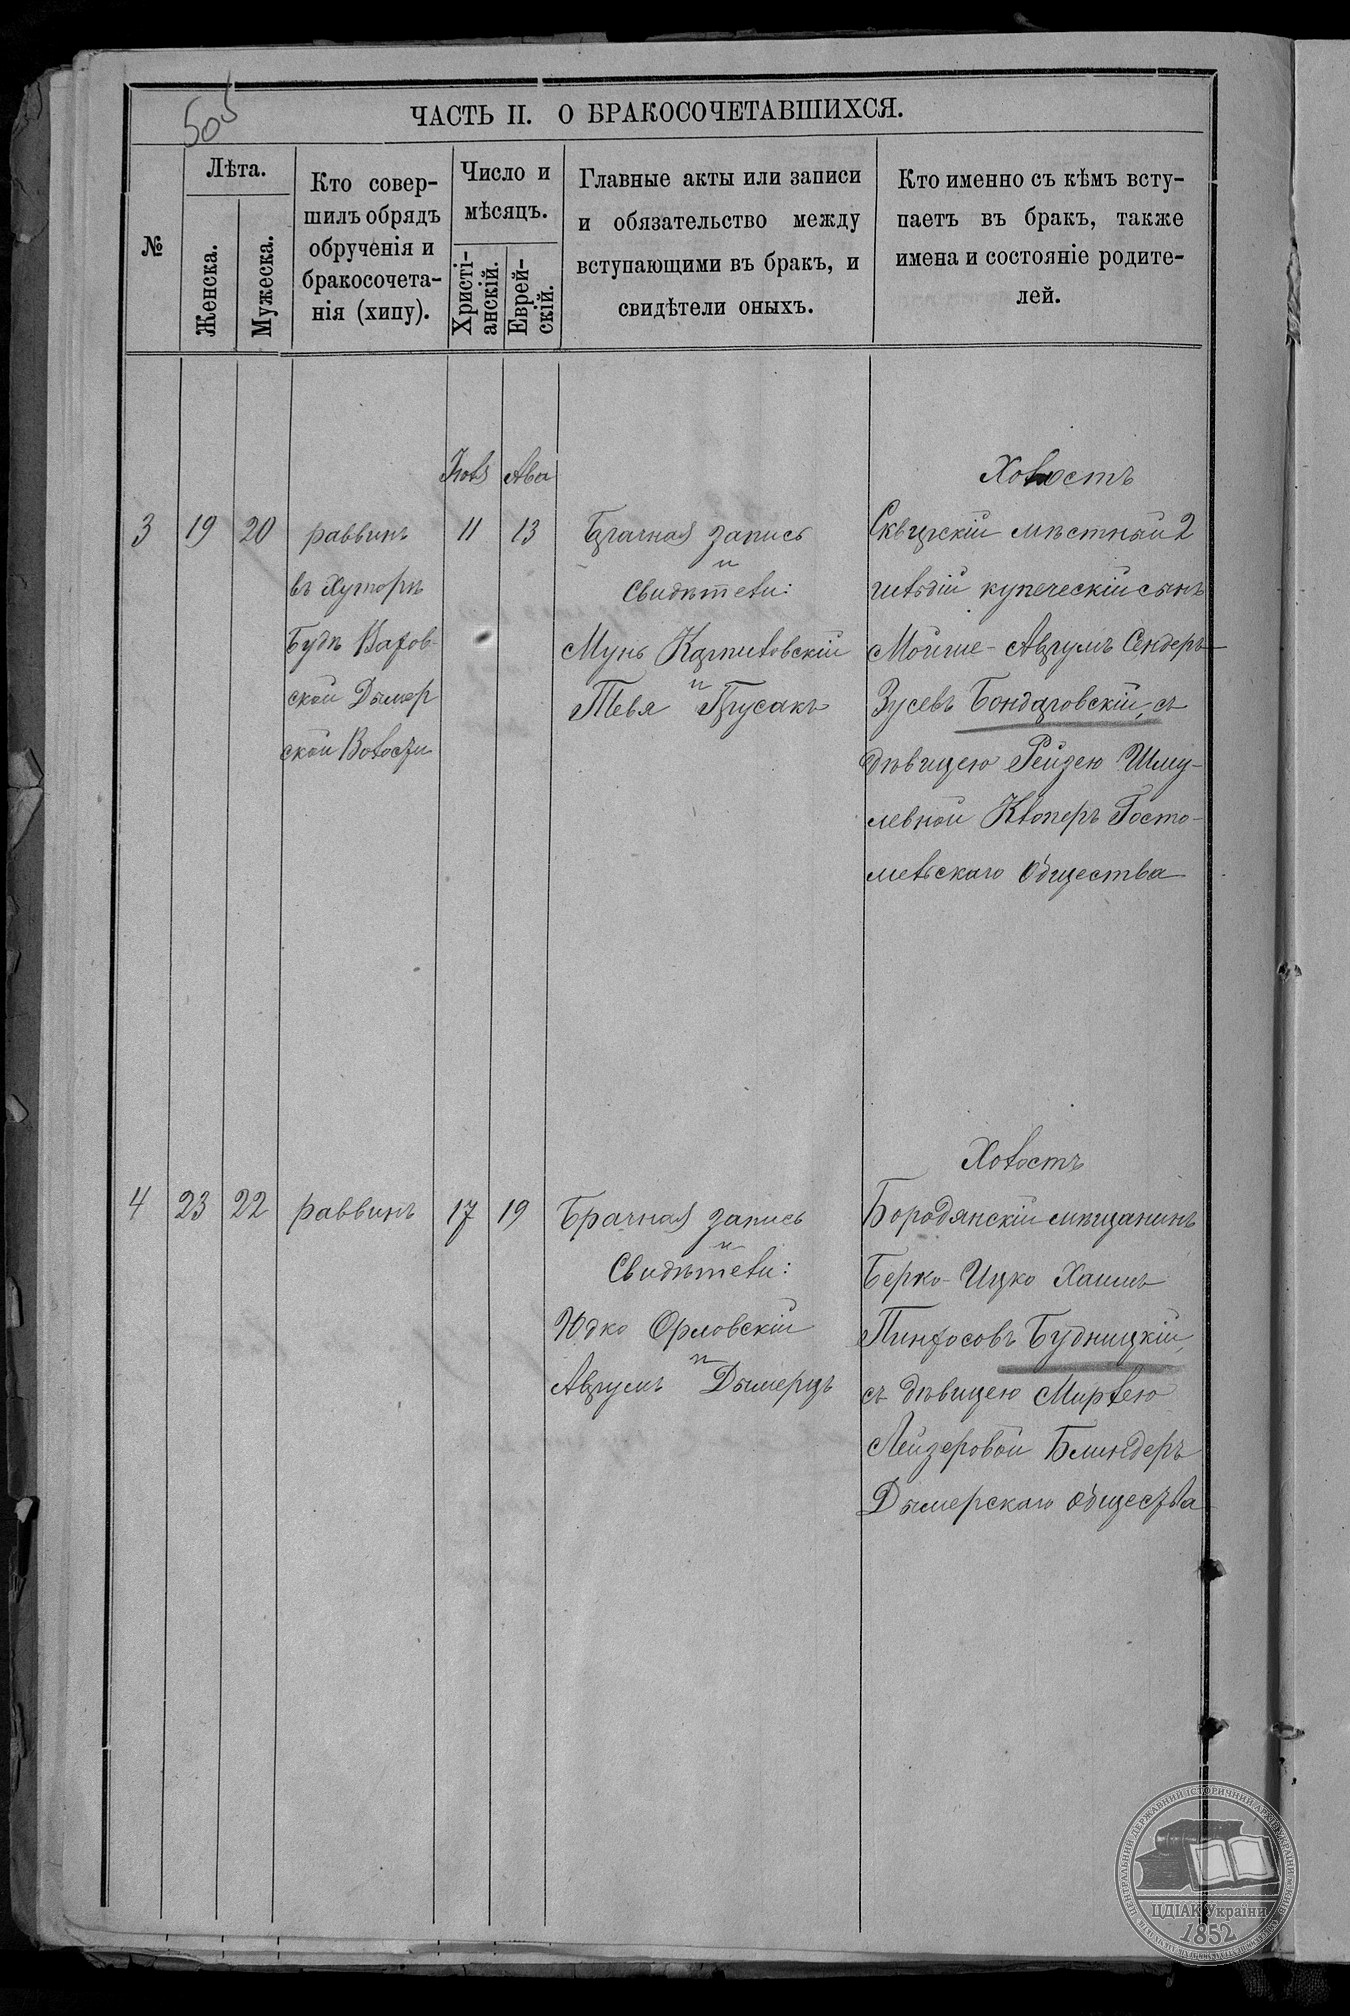 505
ЧАСТЬ II. О БРАКОСОЧЕТАВШИХСЯ.
№
Лѣта.
Женска.
Мужеска.
Кто совер-
шилъ обрядъ
обрученія и
бракосочета-
нія (хипу).
Число и
мѣсяцъ.
Христі-
анскій.
Еврей-
скій.
Главные акты или записи
и обязательство между
вступающими въ бракъ, и
свидѣтели оныхъ.
Кто именно съ кѣмъ всту-
паетъ въ бракъ, также
имена и состояніе родите-
лей.
3
19
20
раввинъ
въ Хуторѣ
Будѣ
ской Дымер
ской Волости
Іюля
11
Ава
13
Брачная запись
и
Свидѣтели:
Мунь Карпиловскій
и
Тевя Прусакъ
Холостъ
Сквирскій мѣстный 2
гильдій купеческій сынъ
Мойше-Аврумъ Сендеръ-
Зусевъ Бондаровскій, съ
дѣвицею Рейзею Шму-
левной Клоперъ Госто-
мельскаго общества
4
23
22
раввинъ
17
19
Брачная запись
и
Свидѣтели:
Юдко Орловскій
и
Аврумъ Дымерецъ
Холостъ
Бородянскій мѣщанинъ
Берко-Ицко Хаимъ
Пинхосовъ Будницкій,
съ дѣвицею Мирлею
Лейзеровой Блиндеръ
Дымерскаго общества
ЦЕНТРАЛЬНИЙ ДЕРЖАВНИЙ ІСТОРИЧНИЙ АРХІВ УКРАЇНИ
ЦДІАК України
1852